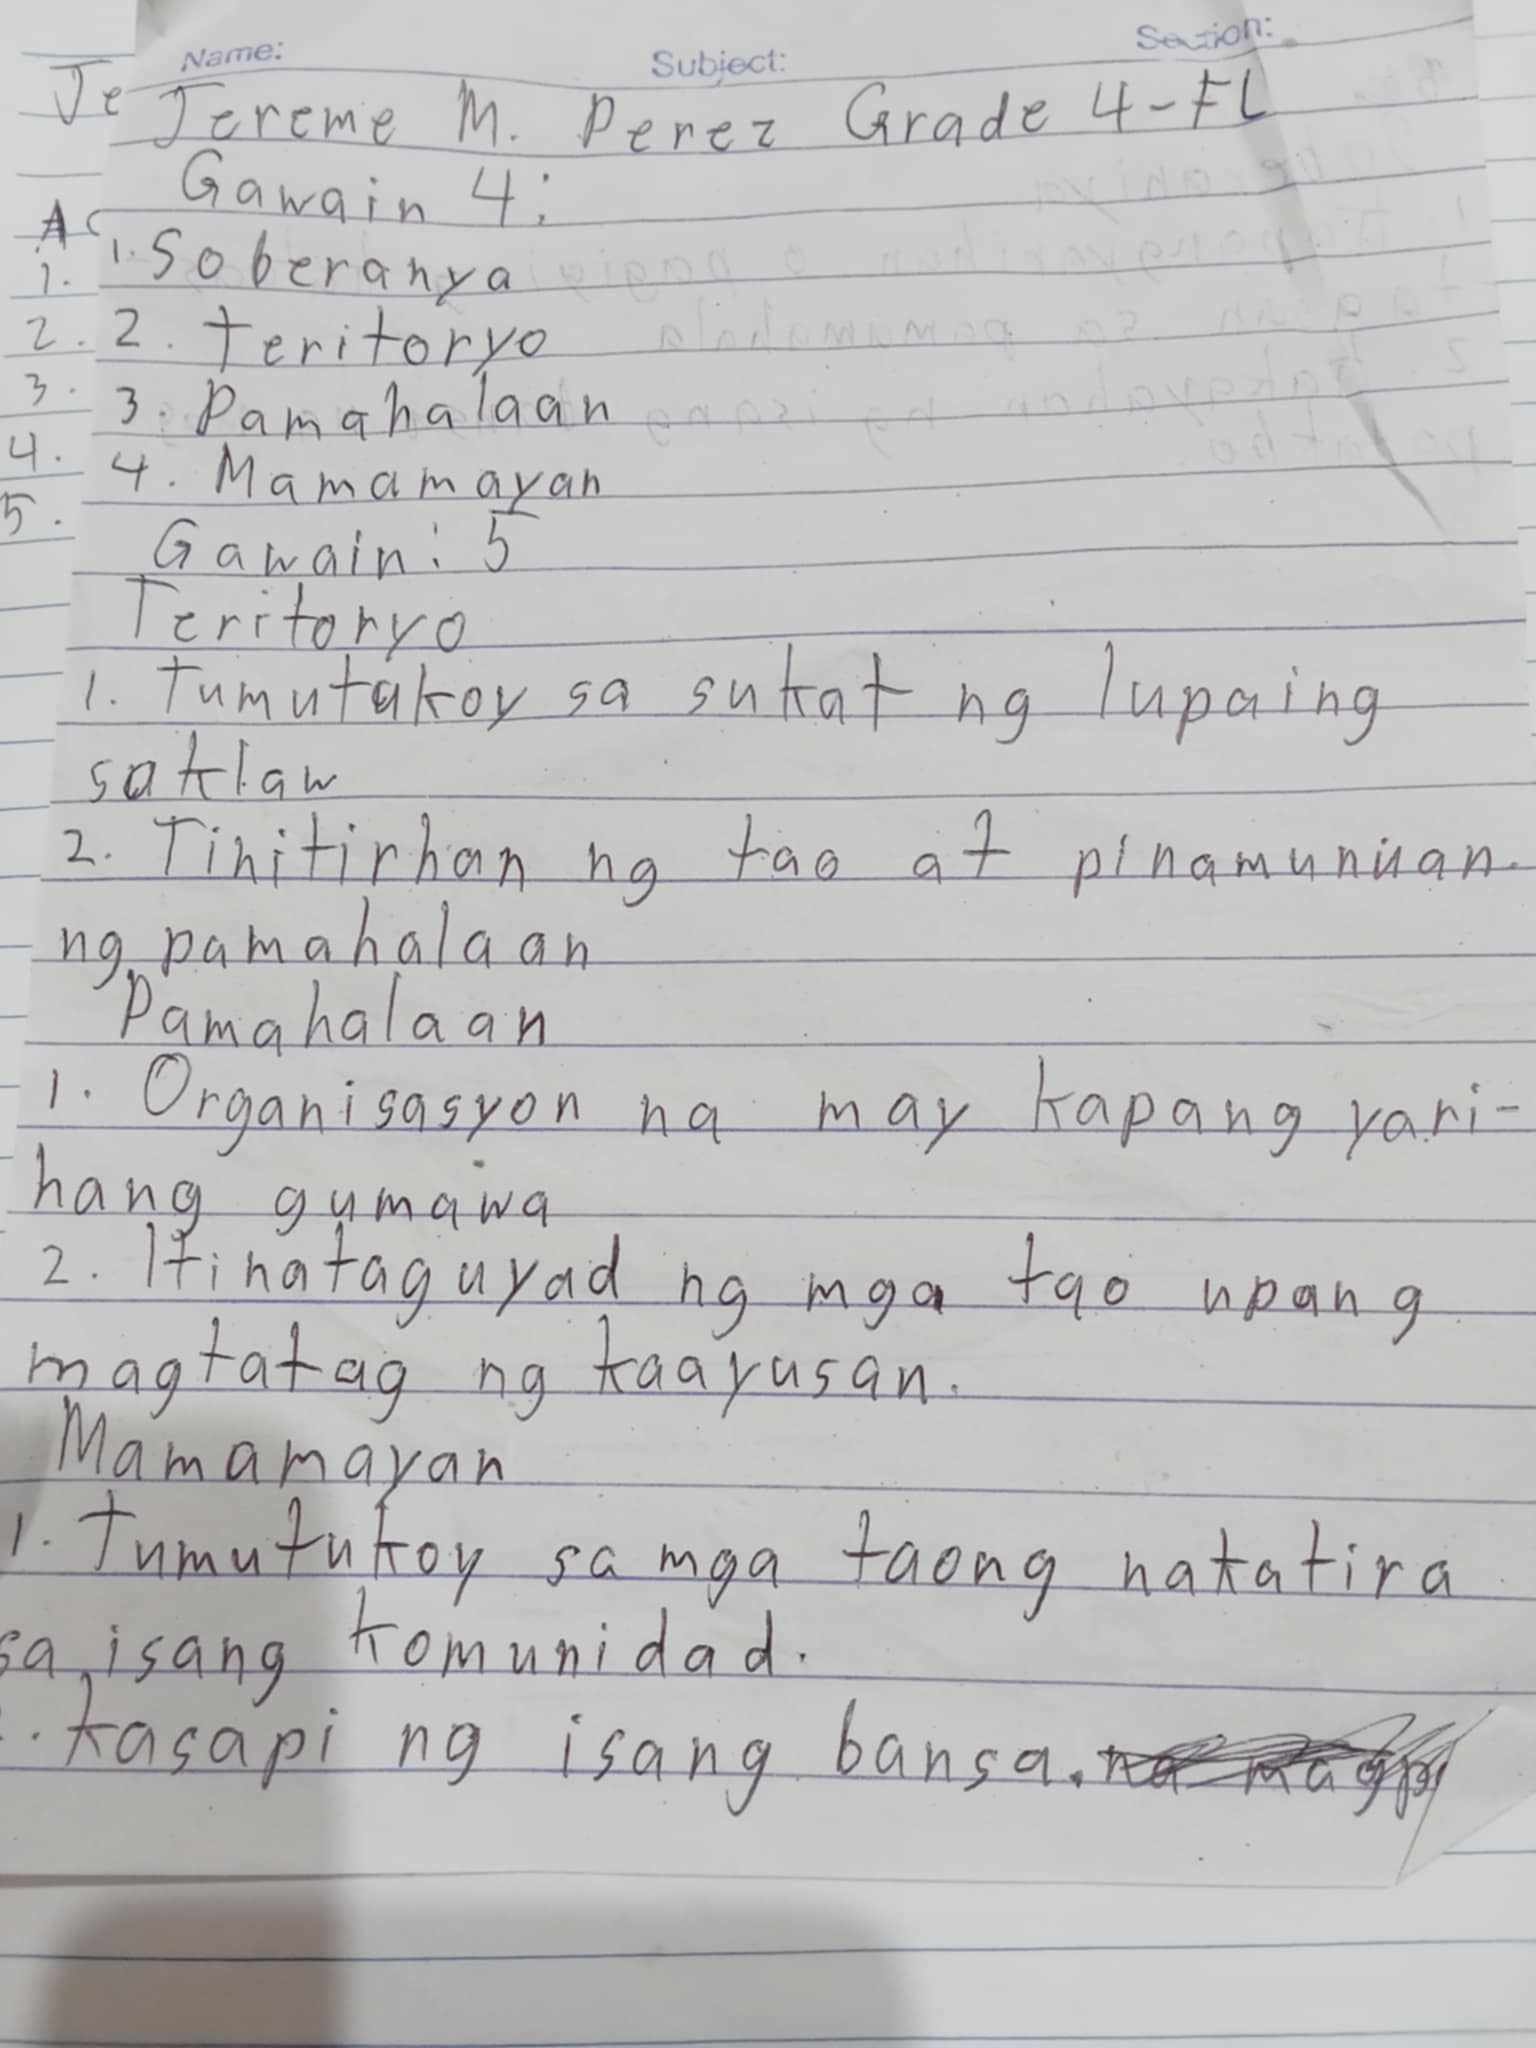 Name: Subject: Section:
Je Jereme M. Perez Grade 4-FL
Gawain 4:
A
1. 1. Soberanya
2. 2. Teritoryo
3. 3. Pamahalaan
4. 4. Mamamayan
5.
Gawain: 5
Teritoryo
1. Tumutakoy sa sukat ng lupaing
saklaw
2. Tinitirhan ng tao at pinamunuan.
ng pamahalaan
Pamahalaan
1. Organisasyon na may kapangyari-
hang gumawa
2. Itinataguyad ng mga tao upang
magtatag ng kaayusan.
Mamamayan
1. Tumutukoy sa mga taong nakatira
sa isang komunidad.
. kasapi ng isang bansa.